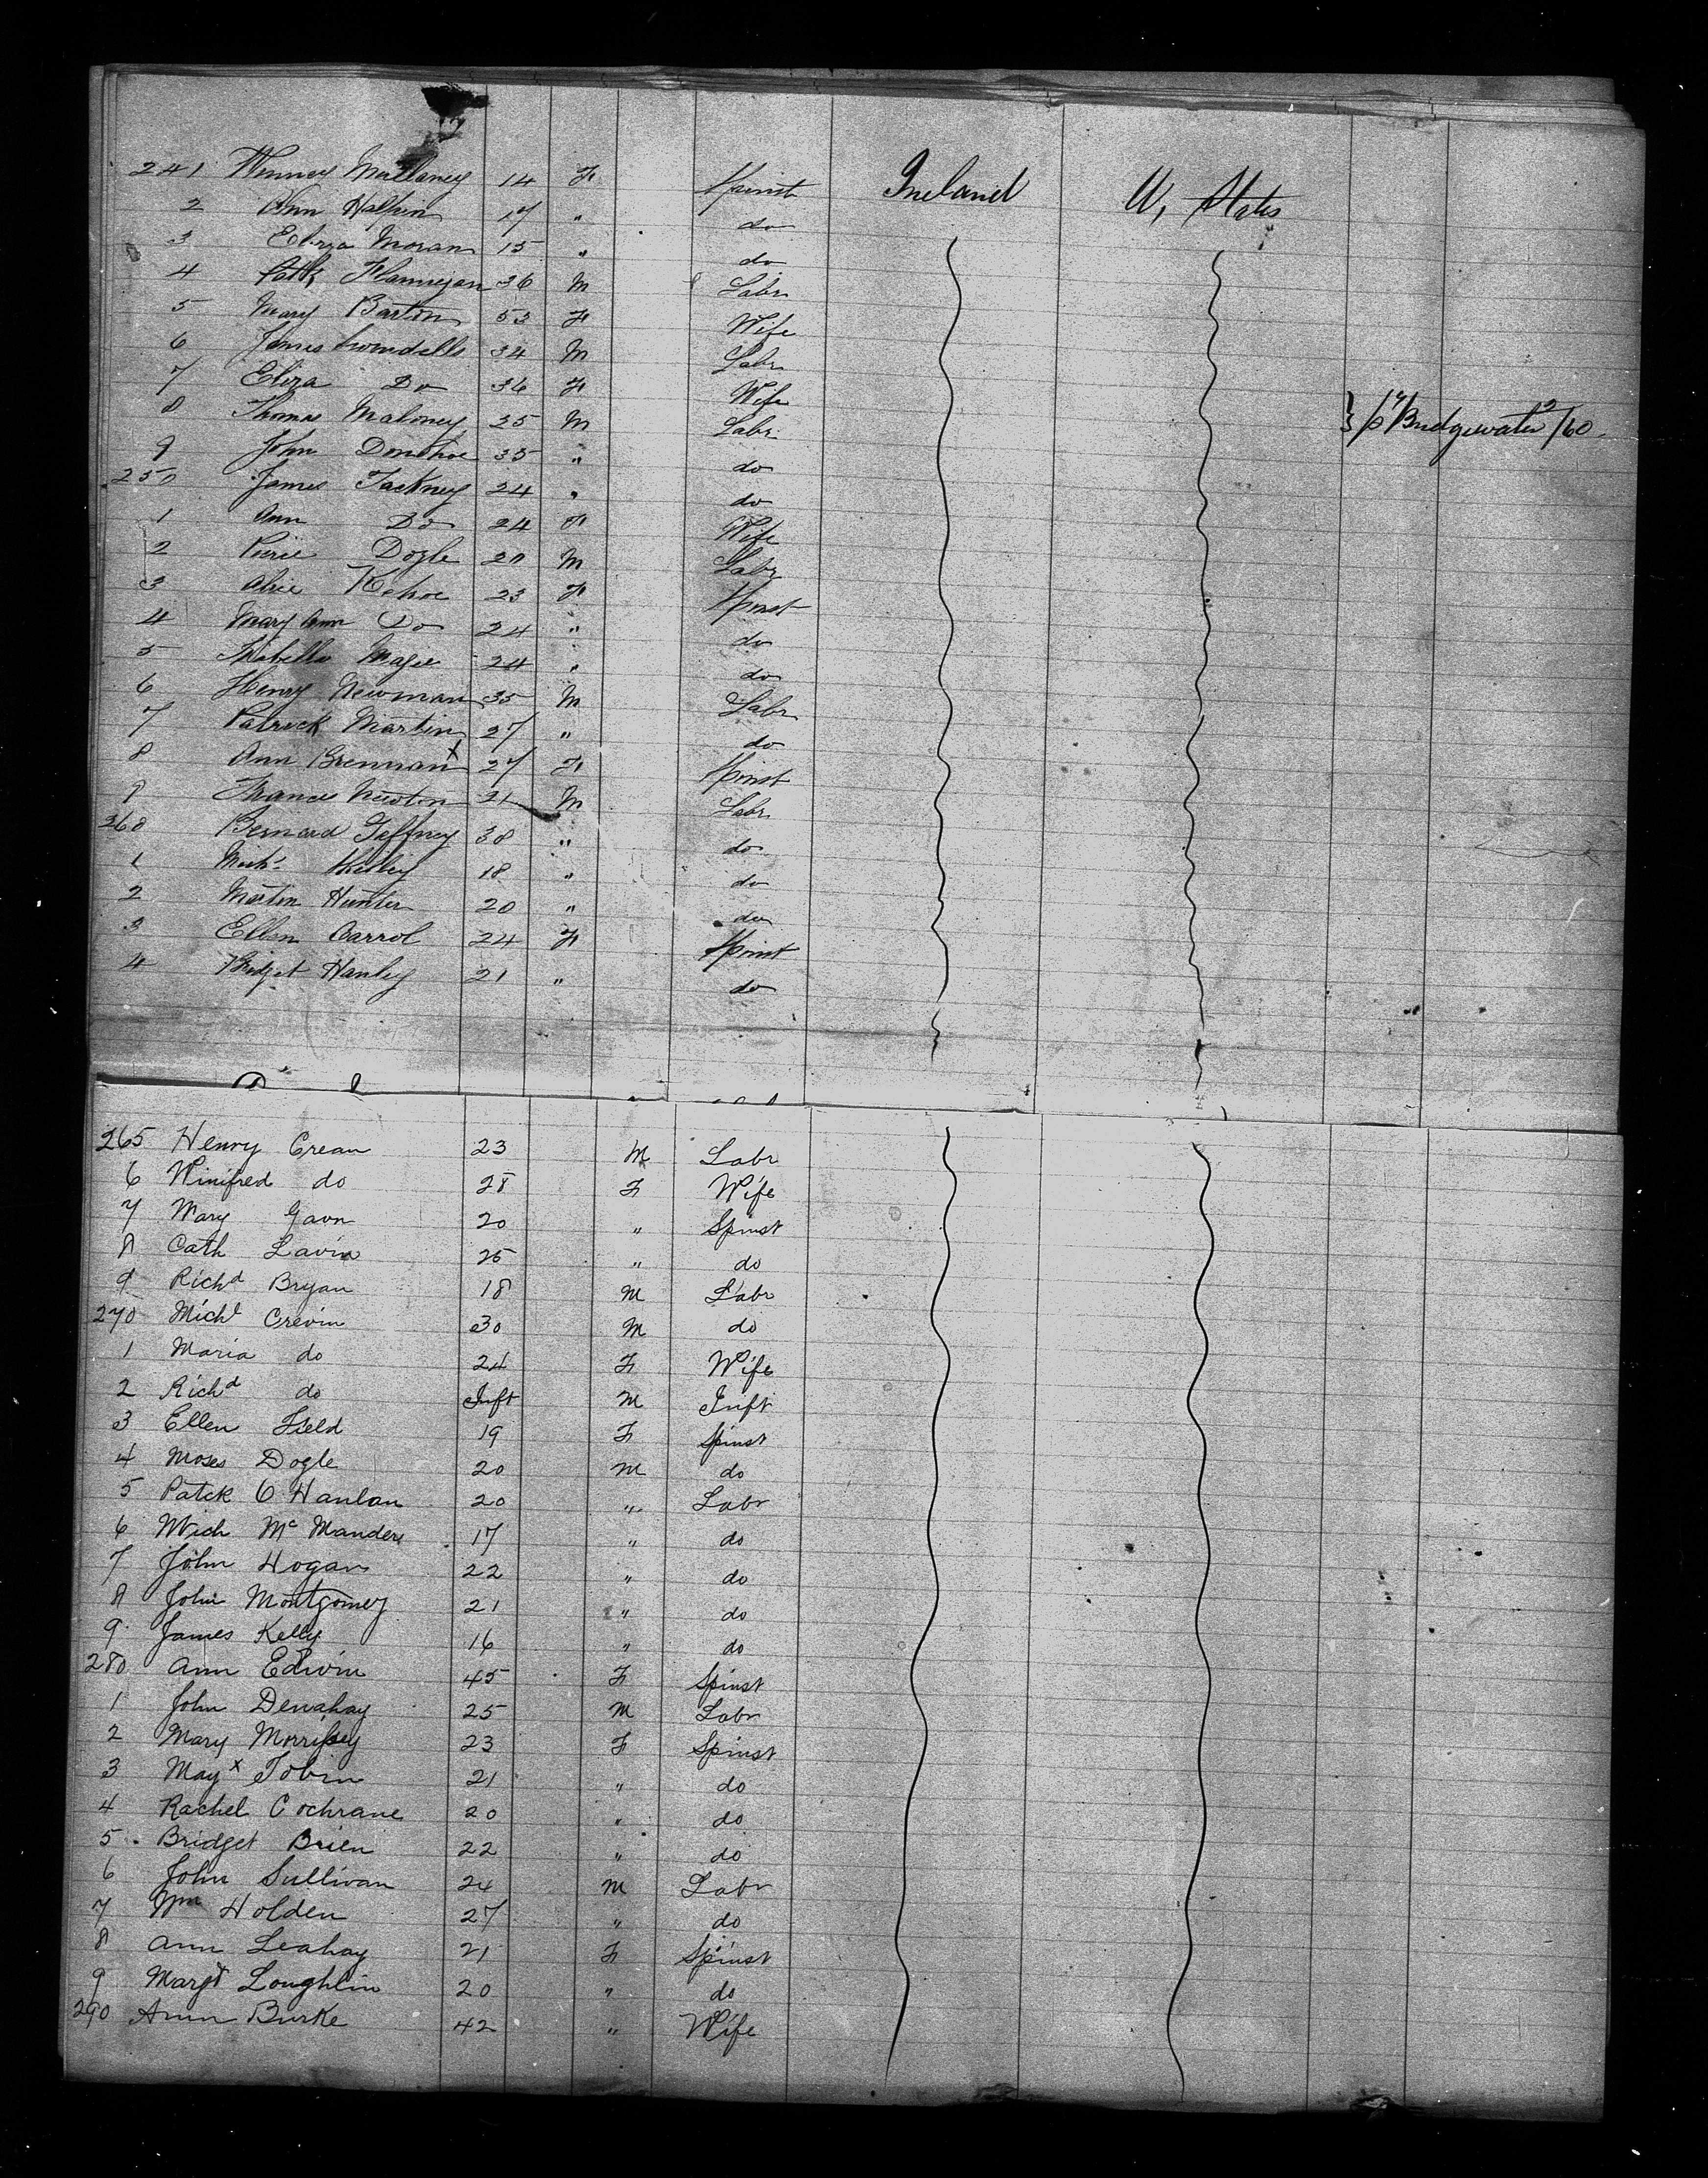 241 Winney Mullaney 14 F Spinst Ireland U, States
2 Ann Halpin 17 " do
3 Eliza Moran 15 " do
4 Patk Flannigan 36 M Labr
5 Mary Barton 53 F Wife
6 James 34 M Labr
7 Eliza Do 36 F Wife
8 Thomas Maloney 25 M Labr Bridgewater 2/60
9 John Donohoe 35 " do
250 James Tackney 24 " do
1 Ann Do 24 F Wife
2 Dogle 20 M Labr
3 Alice Kehoe 23 F Spinst
4 Mary Ann Do 24 " do
5 Isabella Magee 24 " do
6 Henry Newman 35 M Labr
7 Patrick Martin 27 " do
8 Ann Brennan x 27 F Spinst
9 Frances Newton 21 M Labr
260 Bernard Gaffney 38 " do
1 Michl 18 " do
2 Martin Hunter 20 " do
3 Ellen Carrol 24 F Spinst
4 Bridget Hanley 21 " do
265 Henry Crean 23 M Labr
6 Winifred do 28 F Wife
7 Mary Gavn 20 " Spinst
8 Cath Lavin 25 " do
9 Richd Bryan 18 M Labr
270 Michl Crevin 30 M do
1 Maria do 24 F Wife
2 Richd do Inft M Inft
3 Ellen Field 19 F Spinst
4 Moses Dogle 20 M do
5 Patck O Hanlan 20 " Labr
6 Mich Mc Manders 17 " do
7 John Hogan 22 " do
8 John Montgomey 21 " do
9 James Kelly 16 " do
280 Ann Edwin 45 F Spinst
1 John Denahay 25 M Labr
2 Mary Morrissey 23 F Spinst
3 May x Tobin 21 " do
4 Rachel Cochrane 20 " do
5 Bridget Brien 22 " do
6 John Sullivan 24 M Labr
7 Wm Holden 27 " do
8 Ann Leahay 21 F Spinst
9 Margt Loughlin 20 " do
290 Ann Burke 42 " Wife